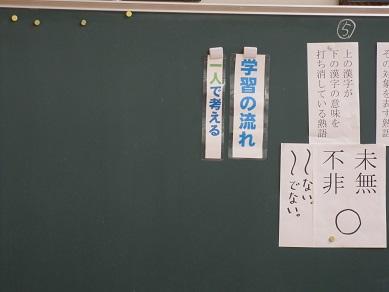 その対象を表す熟語
⑤
上の漢字が
下の漢字の意味を
打ち消している熟語
未無
不非
○
〜ない。
〜でない。
学習の流れ
一人で考える